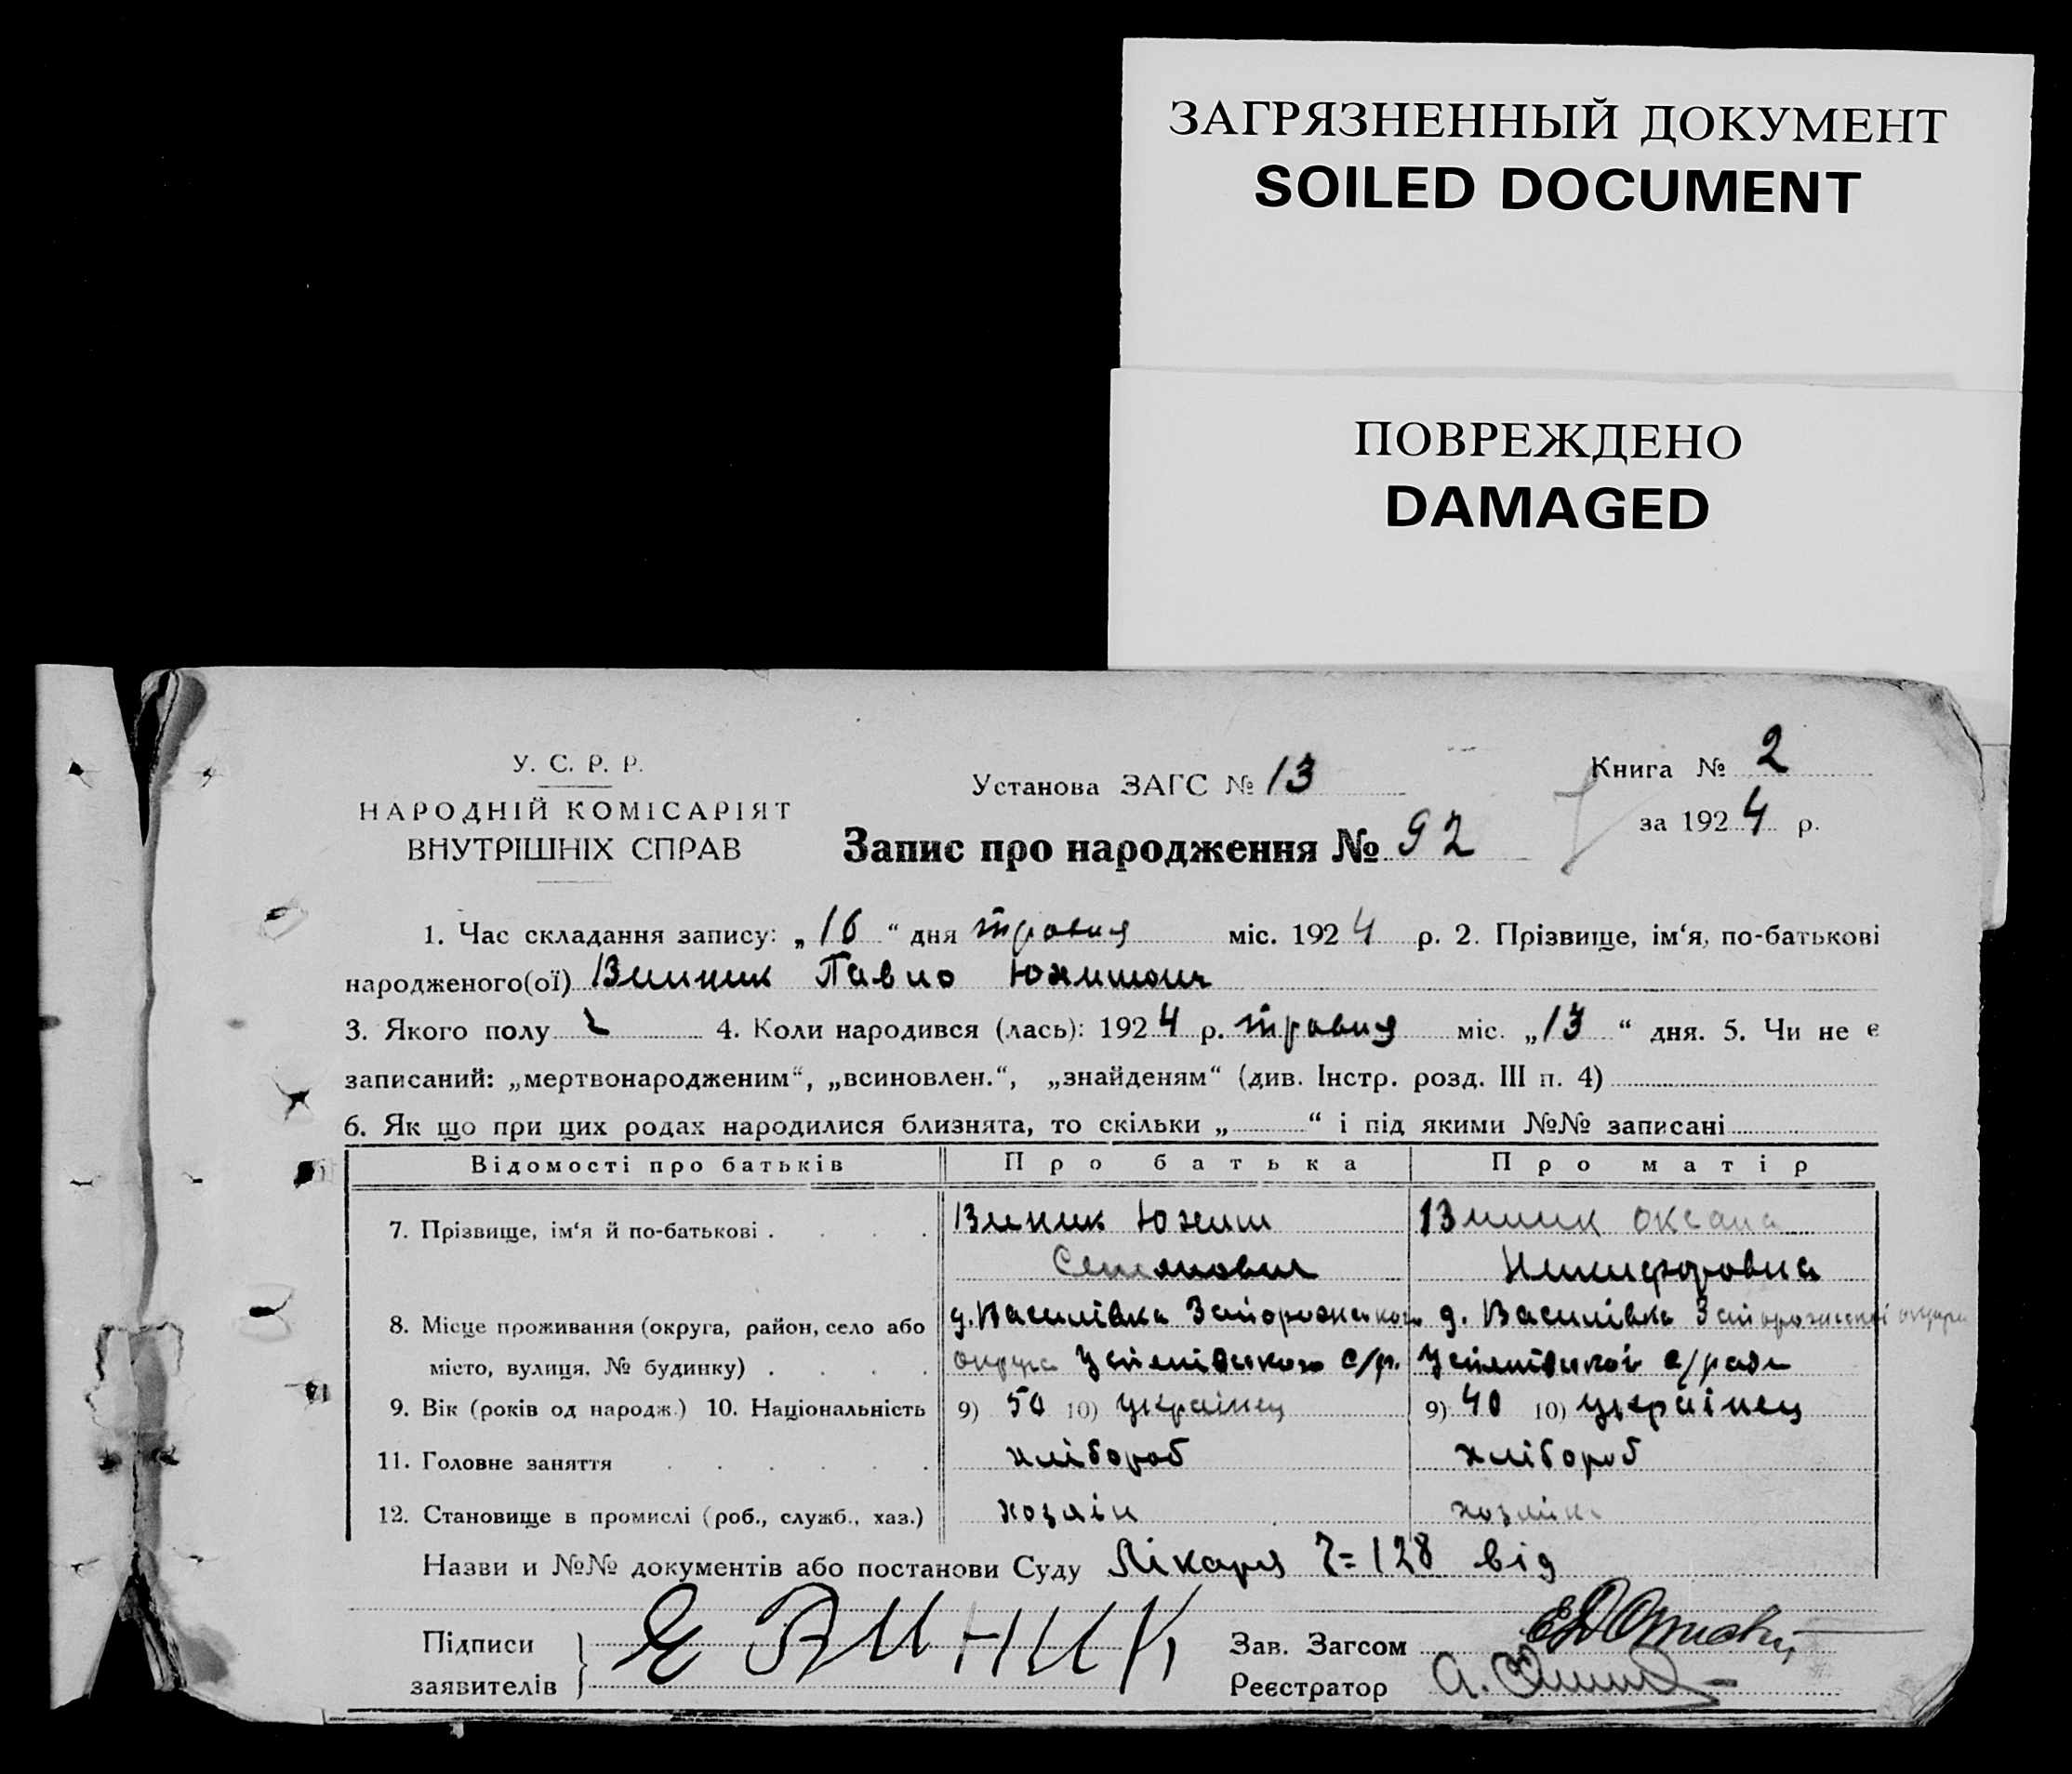 ЗАГРЯЗНЕННЫЙ ДОКУМЕНТ
SOILED DOCUMENT
ПОВРЕЖДЕНО
DAMAGED
У. С. Р. Р.
НАРОДНІЙ КОМІСАРІЯТ
ВНУТРІШНІХ СПРАВ
Установа ЗАГС № 13
Книга № 2
за 1924 р.
Запис про народження № 92
1. Час складання запису: „16“ дня травня міс. 1924 р. 2. Прізвище, ім‘я, по-батькові
народженого(ої) Винник Павло Юхимович
3. Якого полу ч 4. Коли народився (лась): 1924 р. травня міс. „13“ дня. 5. Чи не є
записаний: „мертвонародженим“, „всиновлен.“, „знайденям“ (див. Інстр. розд. III п. 4)
6. Як що при цих родах народилися близнята, то скільки „ “ і під якими №№ записані
Відомості про батьків Про батька Про матір
7. Прізвище, ім‘я й по-батькові Виник Юхим Виник Оксана
Семенович Никифоровна
8. Місце проживання (округа, район, село або д. Василівка Запорожського д. Василівка Запорожської округи
місто, вулиця, № будинку) округа с/р. с/ради
9. Вік (років од народж.) 10. Національність 9) 50 10) українец 9) 40 10) українец
11. Головне заняття хлібороб хлібороб
12. Становище в промислі (роб., служб., хаз.) хозяін хозяйка
Назви и №№ документів або постанови Суду Лікаря №128 від
Підписи
заявителів Є ВИНИК
Зав. Загсом
Реєстратор А.